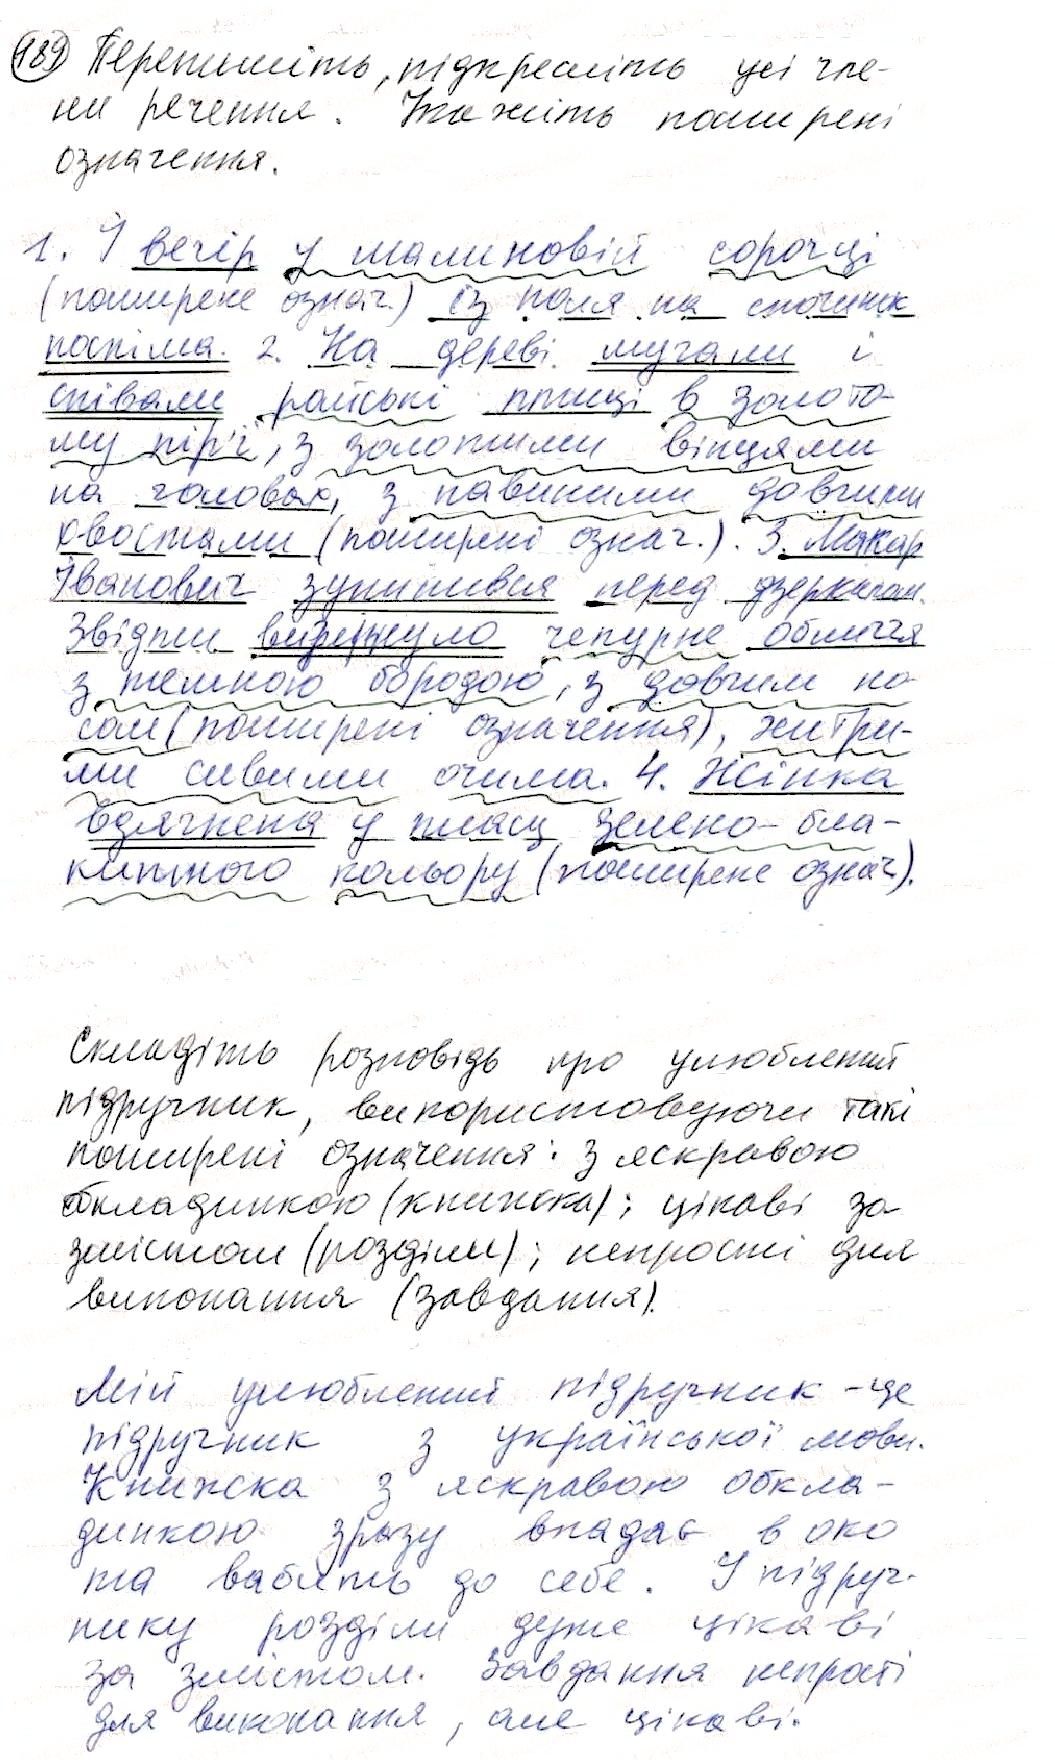 189 Перепишіть, підкресліть усі чле-
ни речення. Укажіть поширені
означення.
1. І вечір у малиновій сорочці
(поширене означ.) із поля на спочинок
поспіша. 2. На дереві мугали і
співали райські птиці в золото-
му пір'ї, з золотими вінцями
на головах, з павиними довгими
хвостами (поширені означ.). 3. Макар
Іванович зупинився перед дзеркалом.
Звідти визирнуло чепурне обличчя
з темною бородою, з довгим но-
сом (поширені означення), хитри-
ми сивими очима. 4. Жінка
вдягнена у плащ зелено-бла-
китного кольору (поширене означ).
Складіть розповідь про улюблений
підручник, використовуючи такі
поширені означення: з яскравою
обкладинкою (книжка); цікаві за
змістом (розділи); непрості для
виконання (завдання).
Мій улюблений підручник - це
підручник з української мови.
Книжка з яскравою обкла-
динкою зразу впадає в око
та вабить до себе. У підруч-
нику розділи дуже цікаві
за змістом. Завдання непрості
для виконання, але цікаві.